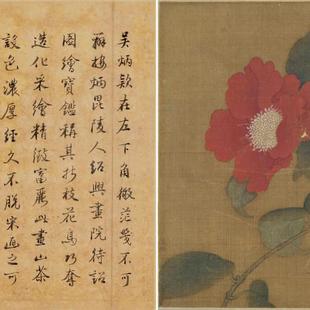 吴炳款在左下角微茫幾不可
辨楼炳毘陵人紹興畫院待詔
圖繪寶鑑稱其折枝花鳥巧奪
造化采繪精緻富麗此畫山茶
設色濃厚經久不脱宋迹之可